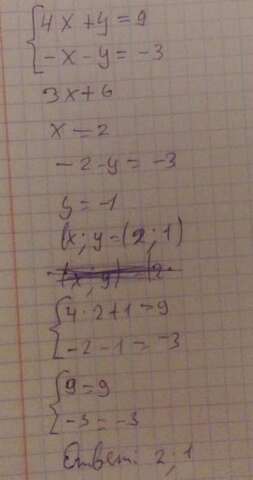 4x+y=9
-x-y=-3
3x+6
x=2
-2-y=-3
y=-1
(x;y-(2;1)
(x;y) (2.
4·2+1=9
-2-1=-3
9=9
-3=-3
Ответ: 2;1